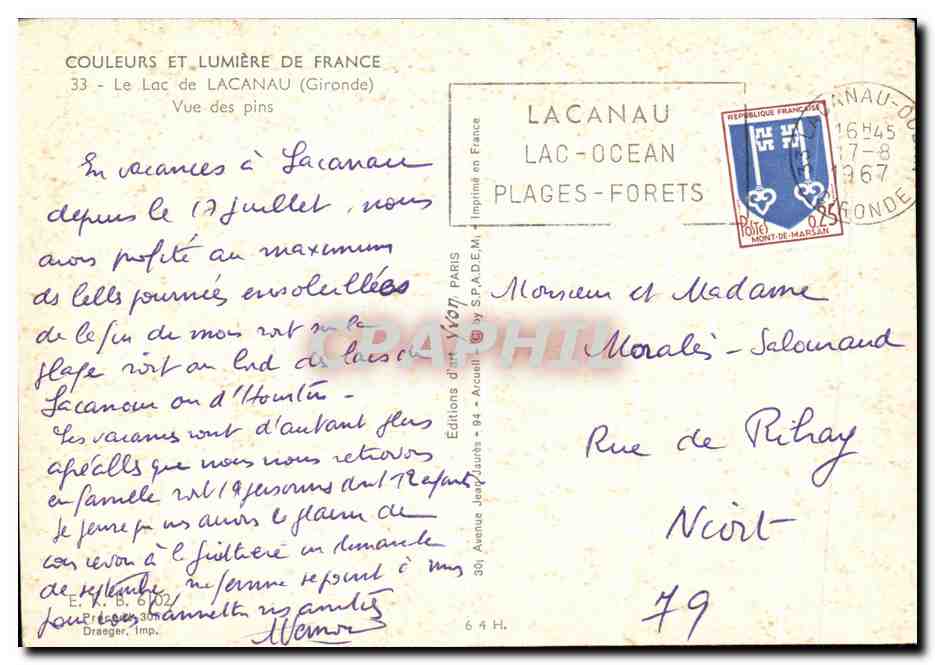 COULEURS ET LUMIÈRE DE FRANCE
33 - Le Lac de LACANAU (Gironde)
Vue des pins
En vacances à Lacanau
depuis le 17 juillet, nous
avons profité au maximum
des belles journées ensoleillées
de la fin de mois soit sur la
plage soit au bord des lacs de
Lacanau ou d'Hourtin -
Les vacances sont d'autant plus
agréables que nous nous retrouvons
en famille soit 19 personnes dont 12 enfants
Je pense que nous aurons le plaisir de
vous revoir à la un dimanche
de septembre, ma femme se joint à moi
pour vous transmettre nos amitiés
E. K. B. 6/02
Draeger, Imp.
Editions d'art Yvon PARIS
30, Avenue Jean-Jaurès - 94 - Arcueil - by S.P.A.D.E.M. - Imprimé en France
6 4 H.
LACANAU
LAC-OCEAN
PLAGES-FORETS
REPUBLIQUE FRANÇAISE
POSTES
0,25
MONT-DE-MARSAN
LACANAU-OCEAN
16H45
17-8
1967
GIRONDE
Monsieur et Madame
Moralès - Salouraud
Rue de Ribray
Niort
79
CRAPHIL